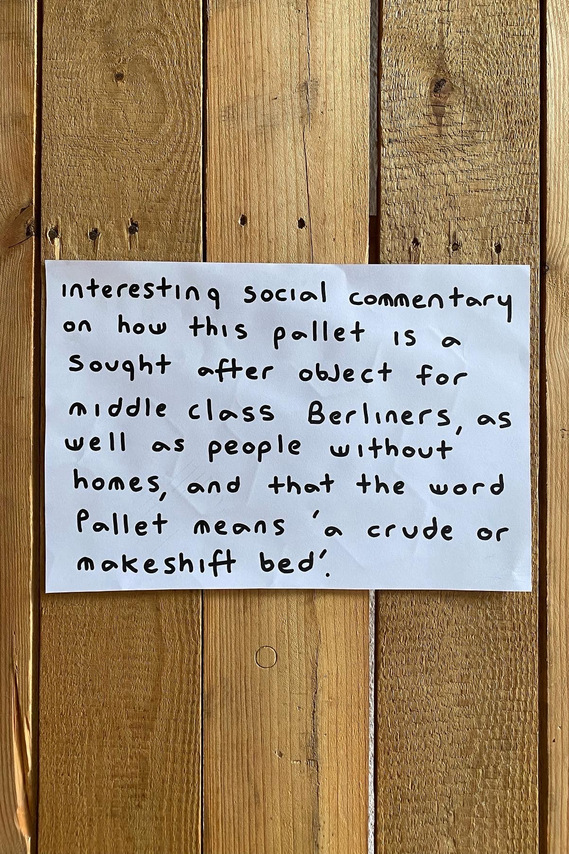 interesting social commentary
on how this pallet is a
sought after object for
middle class Berliners, as
well as people without
homes, and that the word
Pallet means 'a crude or
makeshift bed'.